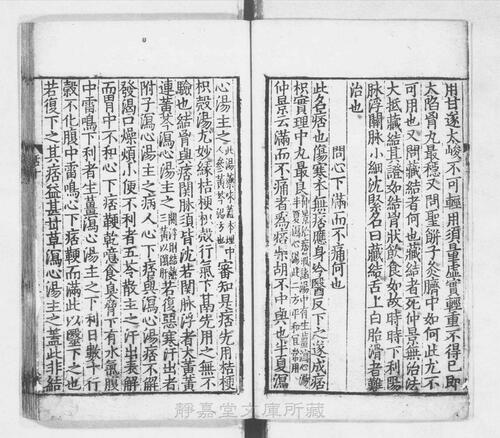 用甘遂太峻不可輕用須量虛實輕重不得已即
大陷胷丸最穩又問聖餅子灸臍中如何此尤不
可用也又問藏結者何也藏結者死仲景無治法
大抵藏結其證如結胷狀飲食如故時時下利陽
脉浮關脉小細沈緊名曰藏結舌上白胎滑者難
治也
問心下滿而不痛何也
此名痞也傷寒本無痞應身冷醫反下之遂成痞
枳實理中丸最良
仲景云滿而不痛者爲痞柴胡不中與也半夏瀉
心湯主之
審知是痞先用桔梗
枳殼湯尤妙緣桔梗枳殼行氣下膈先用之無不
驗也結胷與痞關脉須皆沈若關脉浮者大黃黃
連黃芩瀉心湯主之
若復惡寒汗出者
附子瀉心湯主之病人心下痞與瀉心湯痞不解
發渴口燥煩小便不利者五苓散主之汗出表解
而胃中不和心下痞鞕乾噫食臭脅下有水氣腹
中雷鳴下利者生薑瀉心湯主之下利日數十行
穀不化腹中雷鳴心下痞鞕而滿此以醫下之也
若復下之其痞益甚甘草瀉心湯主之蓋此非結
靜嘉堂文庫所藏